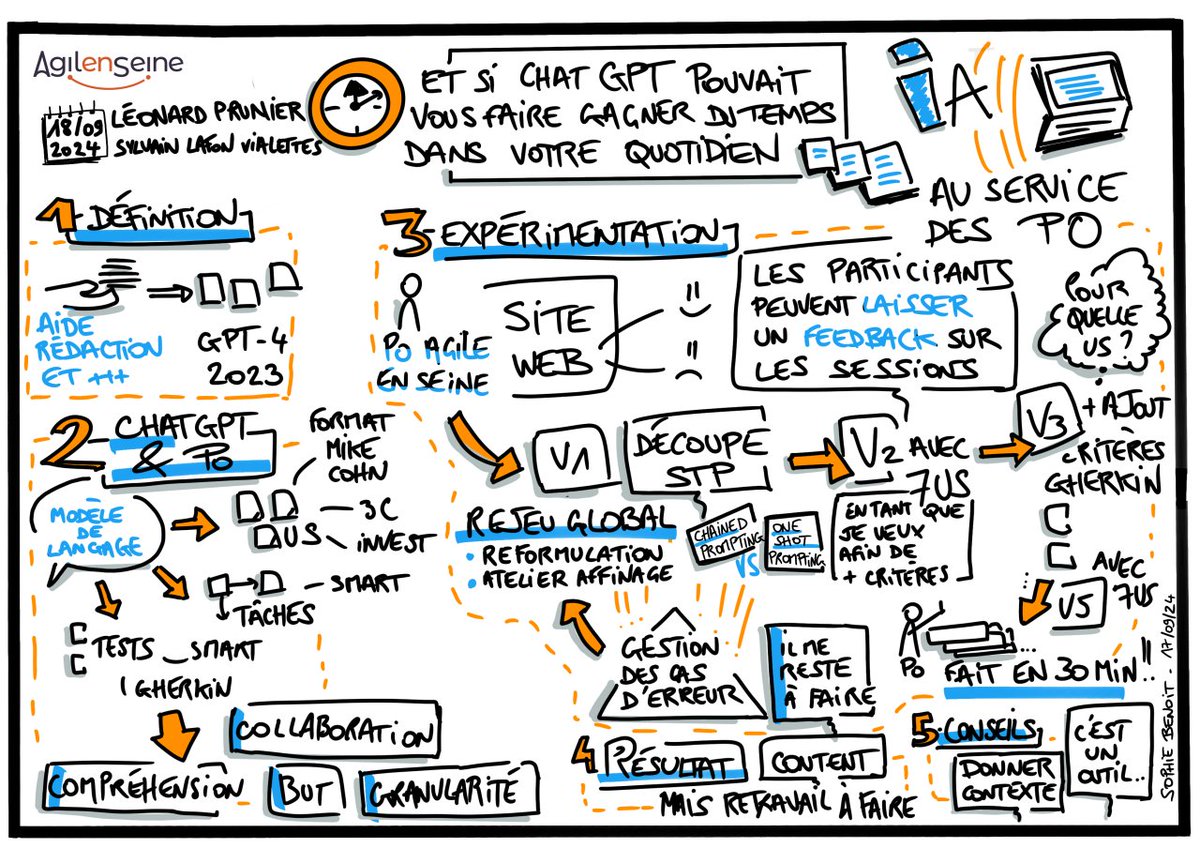 AgilenSeine
18/09
2024
LÉONARD PRUNIER
SYLVAIN LAFON VIALETTES
ET SI CHAT GPT POUVAIT
VOUS FAIRE GAGNER DU TEMPS
DANS VOTRE QUOTIDIEN
iA
AU SERVICE
DES PO
1 DÉFINITION
AIDE
RÉDACTION
ET +++
GPT-4
2023
2 CHATGPT
& PO
MODÈLE
DE
LANGAGE
FORMAT
MIKE
COHN
US
3C
INVEST
SMART
TÂCHES
TESTS _ SMART
GHERKIN
COLLABORATION
COMPRÉHENSION
BUT
GRANULARITÉ
3 EXPÉRIMENTATION
PO AGILE
EN SEINE
SITE
WEB
LES PARTICIPANTS
PEUVENT LAISSER
UN FEEDBACK SUR
LES SESSIONS
POUR
QUELLE
US ?
V1
DÉCOUPE
STP
V2
AVEC
7US
V3
+ AJOUT
CRITÈRES
GHERKIN
EN TANT QUE
JE VEUX
AFIN DE
+ CRITÈRES
CHAINED
PROMPTING
VS
ONE
SHOT
PROMPTING
REJEU GLOBAL
• REFORMULATION
• ATELIER AFFINAGE
AVEC
7US
V5
PO
FAIT EN 30 MIN !!
GESTION
DES CAS
D'ERREUR
IL ME
RESTE
À FAIRE
4 RÉSULTAT
CONTENT
MAIS RETRAVAIL À FAIRE
5 CONSEILS
DONNER
CONTEXTE
C'EST
UN
OUTIL..
SOPHIE BENOIT - 17/09/24